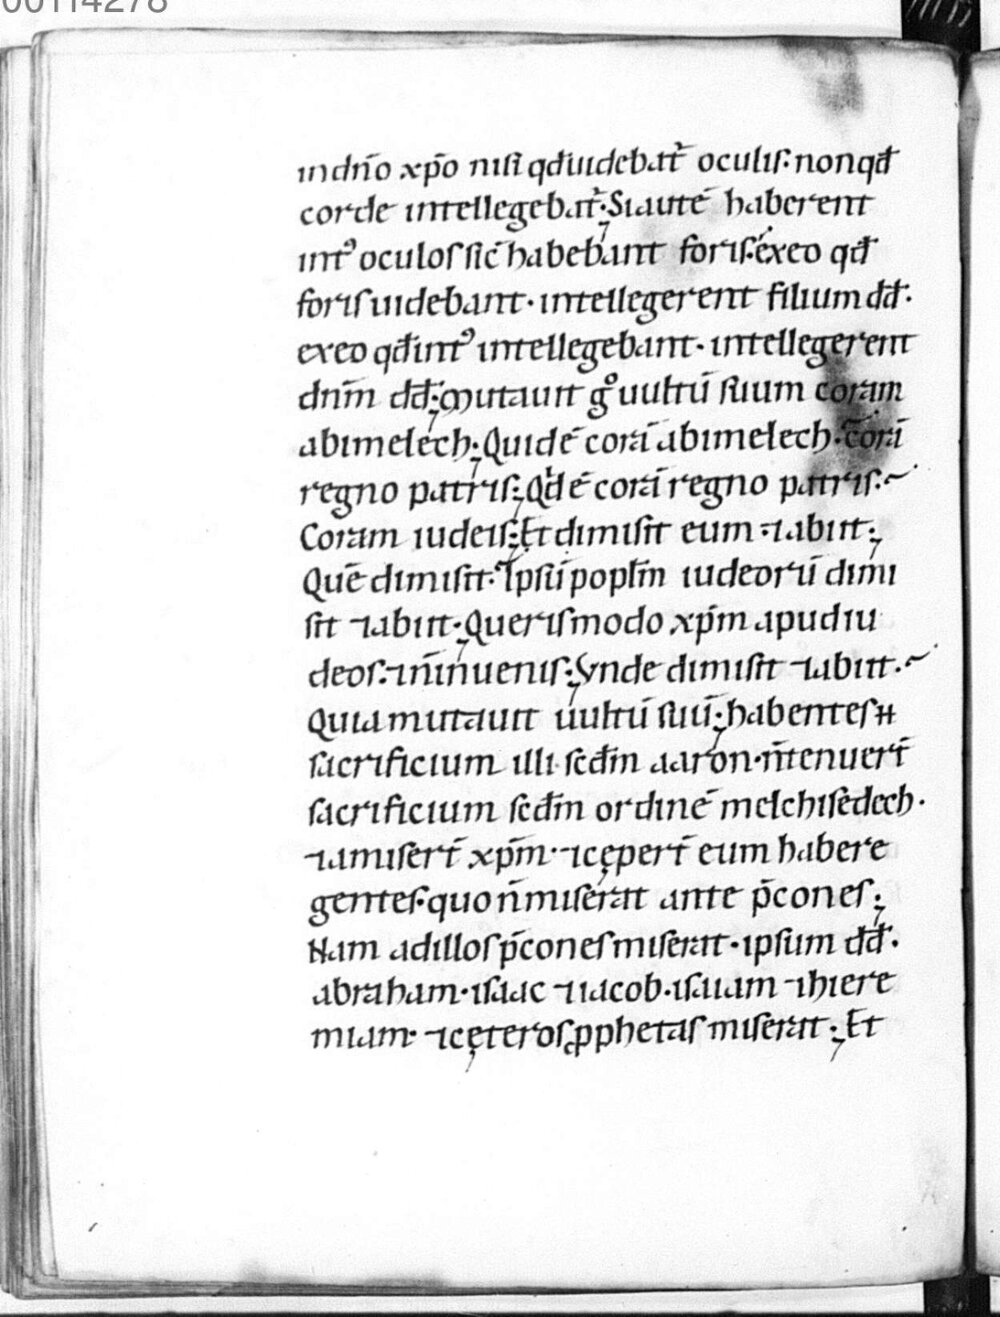 00114278
in dn̄o xp̄o nisi qđ uidebat̄ oculis: non qđ
corde intellegebat̄; Si autē haberent
int᾿ oculos sic̄ habebant foris. ex eo qđ
foris uidebant · intellegerent filium dđ.
ex eo qđ int᾿ intellegebant · intellegerent
dnm̄ dđ; Mutauit g° uultū suum coram
abimelech; Quid ē corā abimelech · corā
regno patris; Qđ ē corā regno patris:~
Coram iudeis; Et dimisit eum ⁊ abiit;
Quē dimisit · Ipsū popłm iudeorū dimi
sit ⁊ abiit; Queris modo xp̄m apud iu
deos · ⁊ n̄ inuenis; Vnde dimisit ⁊ abiit.~
Quia mutauit uultū suū; habentes H
sacrificium illi scđm aaron · n̄ tenuert̄
sacrificium scđm ordinē melchisedech ·
⁊ amisert̄ xp̄m · ⁊ cępert̄ eum habere
gentes · quo n̄ miserat ante p̄cones;
Nam ad illos p̄cones miserat · ipsum dđ.
abraham · isaac ⁊ iacob · isaiam ⁊ hiere
miam · ⁊ cęteros ꝓphetas miserat; Et